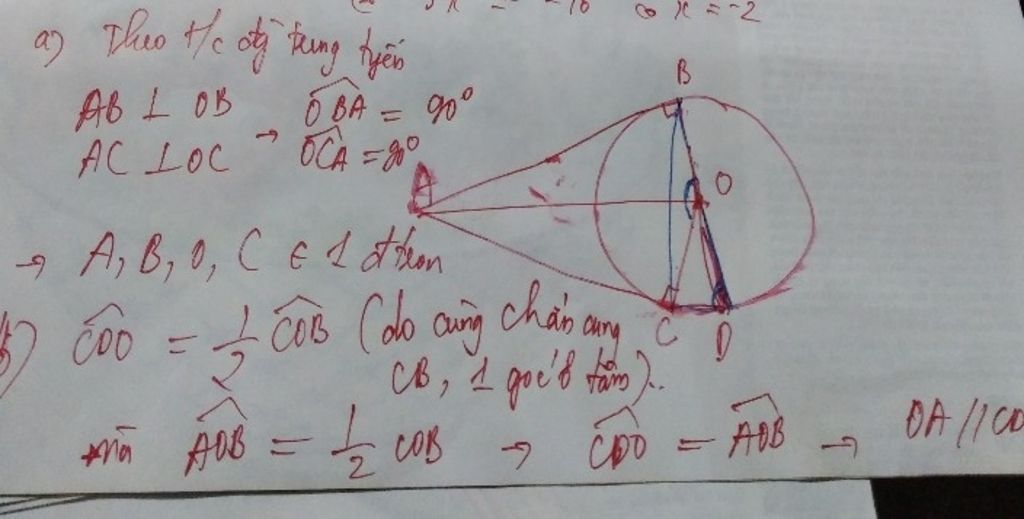 x = -2
a) Theo t/c đg trung tyến
AB ⊥ OB → OBA = 90°
AC ⊥ OC OCA = 90°
→ A, B, O, C ∈ 1 đ tròn
CDO = 1/2 COB (do cùng chắn cung
CB, 1 góc ở tâm)..
mà AOB = 1/2 COB → CDO = AOB → OA // CD
A
B
O
C
D